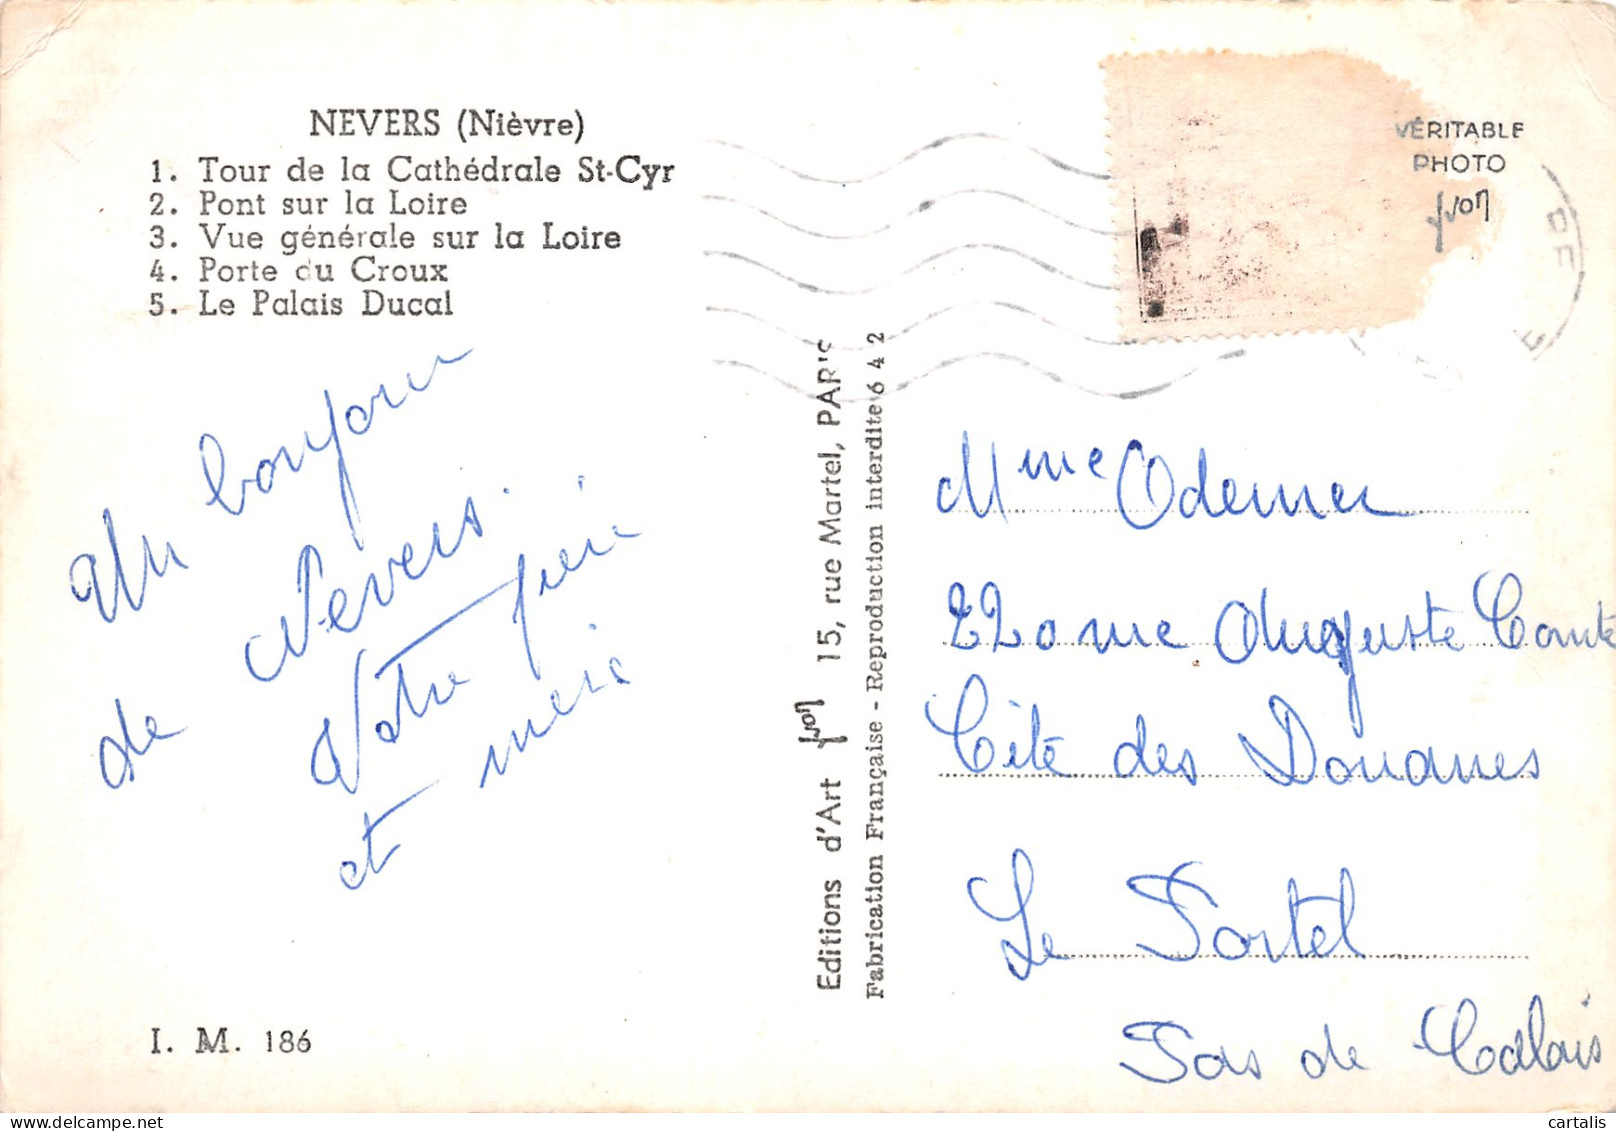 NEVERS (Nièvre)
1. Tour de la Cathédrale St-Cyr
2. Pont sur la Loire
3. Vue générale sur la Loire
4. Porte du Croux
5. Le Palais Ducal
Un bonjour
de Nevers.
Votre père
et mère
I. M. 186
Editions d'Art Yvon 15, rue Martel, PARIS
Fabrication Française - Reproduction interdite 642
VÉRITABLE
PHOTO
Yvon
Mme Odemer
rue Auguste Comte
Cité des Douanes
Le Portel
Pas de Calais
cartalis